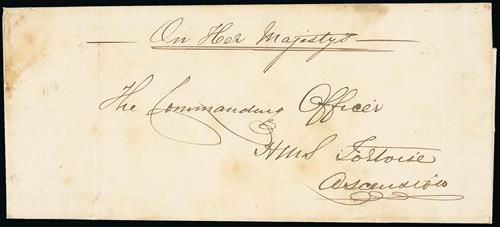 On Her Majesty's
The Commanding Officer
HMS Tortoise
Ascension